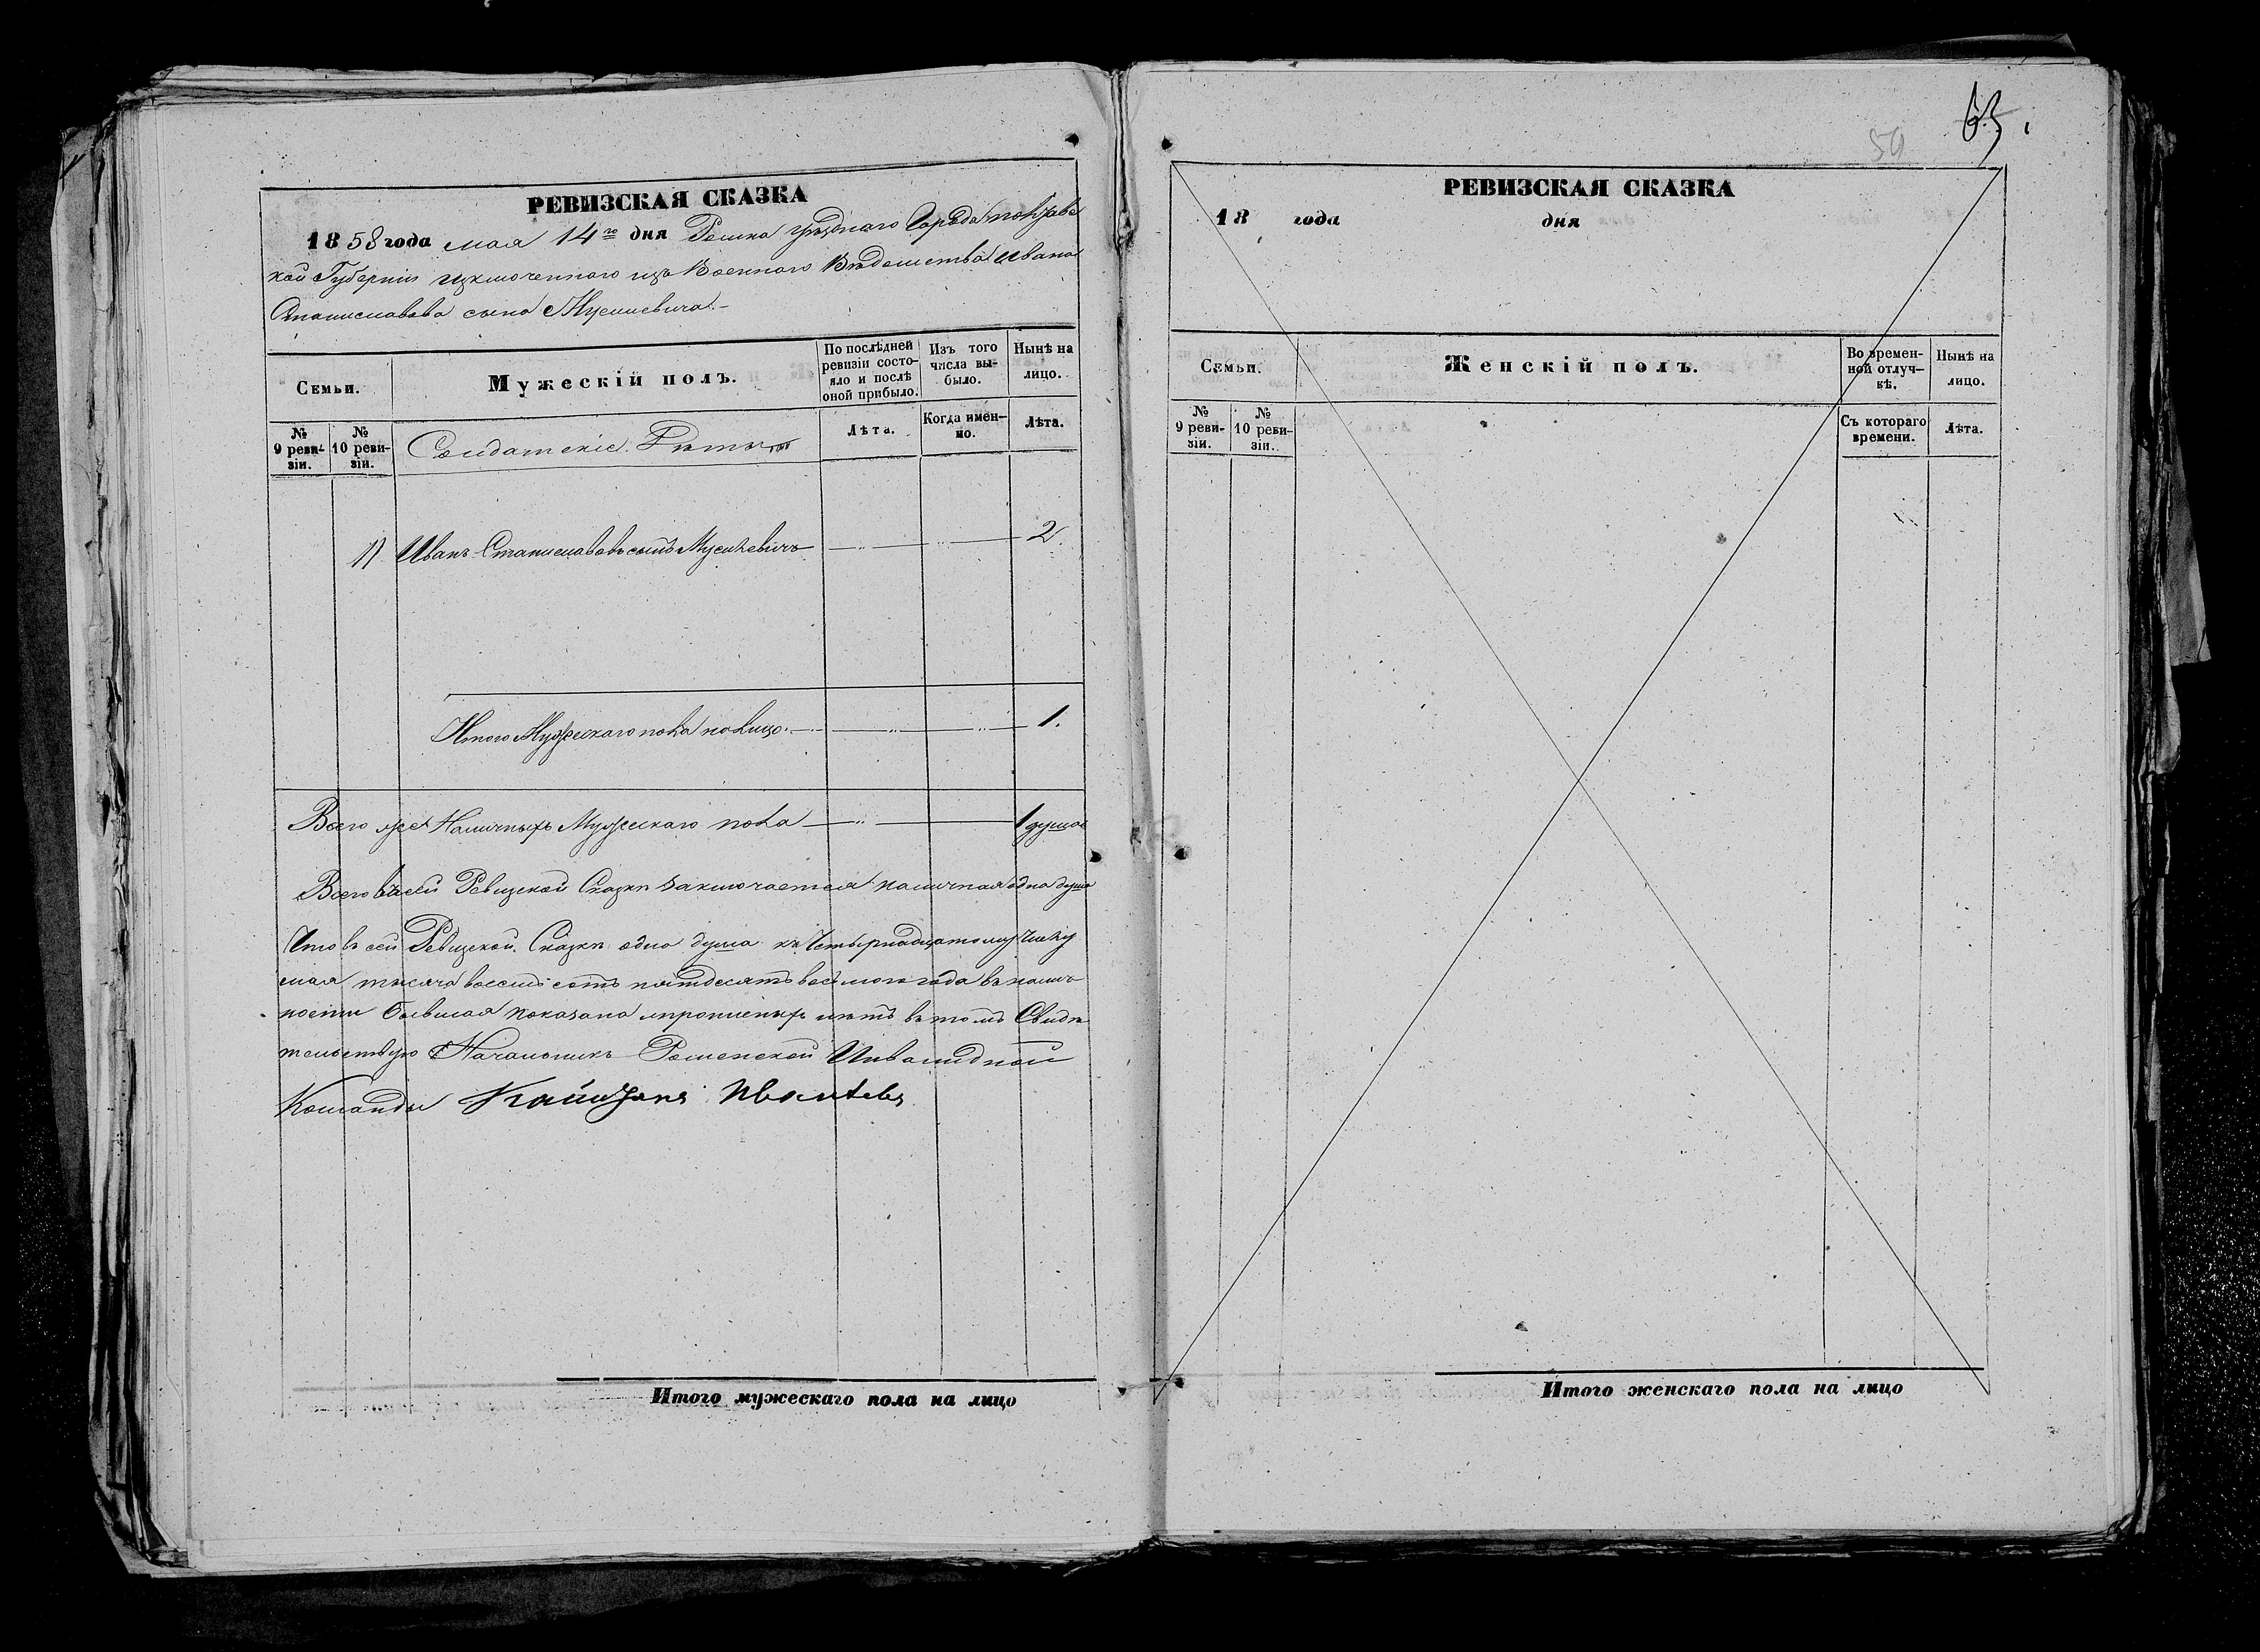 РЕВИЗСКАЯ СКАЗКА
1858 года мая 14го дня Ромна уѣзднаго Города Полтавс
кой Губерніи изключенного изъ Военного Вѣдомства Ивана
Станиславова сына Мусиевича.
Семьи.
Мужескій полъ.
По послѣдней ревизіи состояло и послѣ оной прибыло.
Изъ того числа выбыло.
Нынѣ на лицо.
№ 9 ревизіи.
№ 10 ревизіи.
Солдатскіе Дѣти
Лѣта.
Когда именно.
Лѣта.
1) Иванъ Станиславовъ сынъ Мусиевичъ 2
Итого Мужескаго пола на лицо. 1.
Всего же Наличныхъ Мужескаго пола 1 душа
Всего въ сей Ревизской Сказкѣ заключается наличная одна душа
Что въ сей Ревизской Сказкѣ одна душа къ Четырнадцатому Числу
мая тысяча восемь сотъ пятдесятъ восьмого года въ налич
ности бывшая показана и пропиеныхъ нѣтъ въ томъ Свидѣ
тельствую Начальникъ Роменской Инвалидной
Команды
РЕВИЗСКАЯ СКАЗКА
18 года дня
Семьи.
Женскій полъ.
Во временной отлучкѣ.
Нынѣ на лицо.
№ 9 ревизіи.
№ 10 ревизіи.
Съ котораго времени.
Лѣта.
Итого мужескаго пола на лицо
Итого женскаго пола на лицо
50